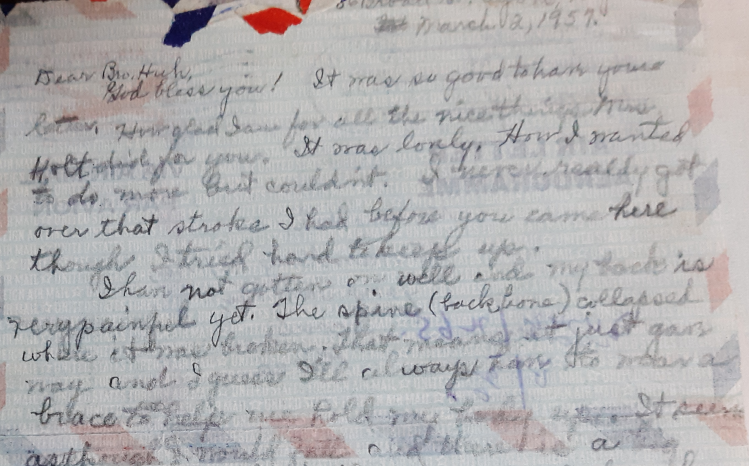 March 2, 1957.
Dear Bro. Huh,
God bless you! It was so good to have your
letter. How glad I am for all the nice things Mrs.
Holt did for you. It was lovly. How I wanted
to do more but couldn't. I never really got
over that stroke I had before you came here
though I tried hard to keep up.
I have not gotten on well and my back is
very painful yet. The spine (backbone) collapsed
where it was broken. That means it just gave
way and I guess I'll always have to wear a
brace to help me hold my body up. It seems
as though I would and there is a big